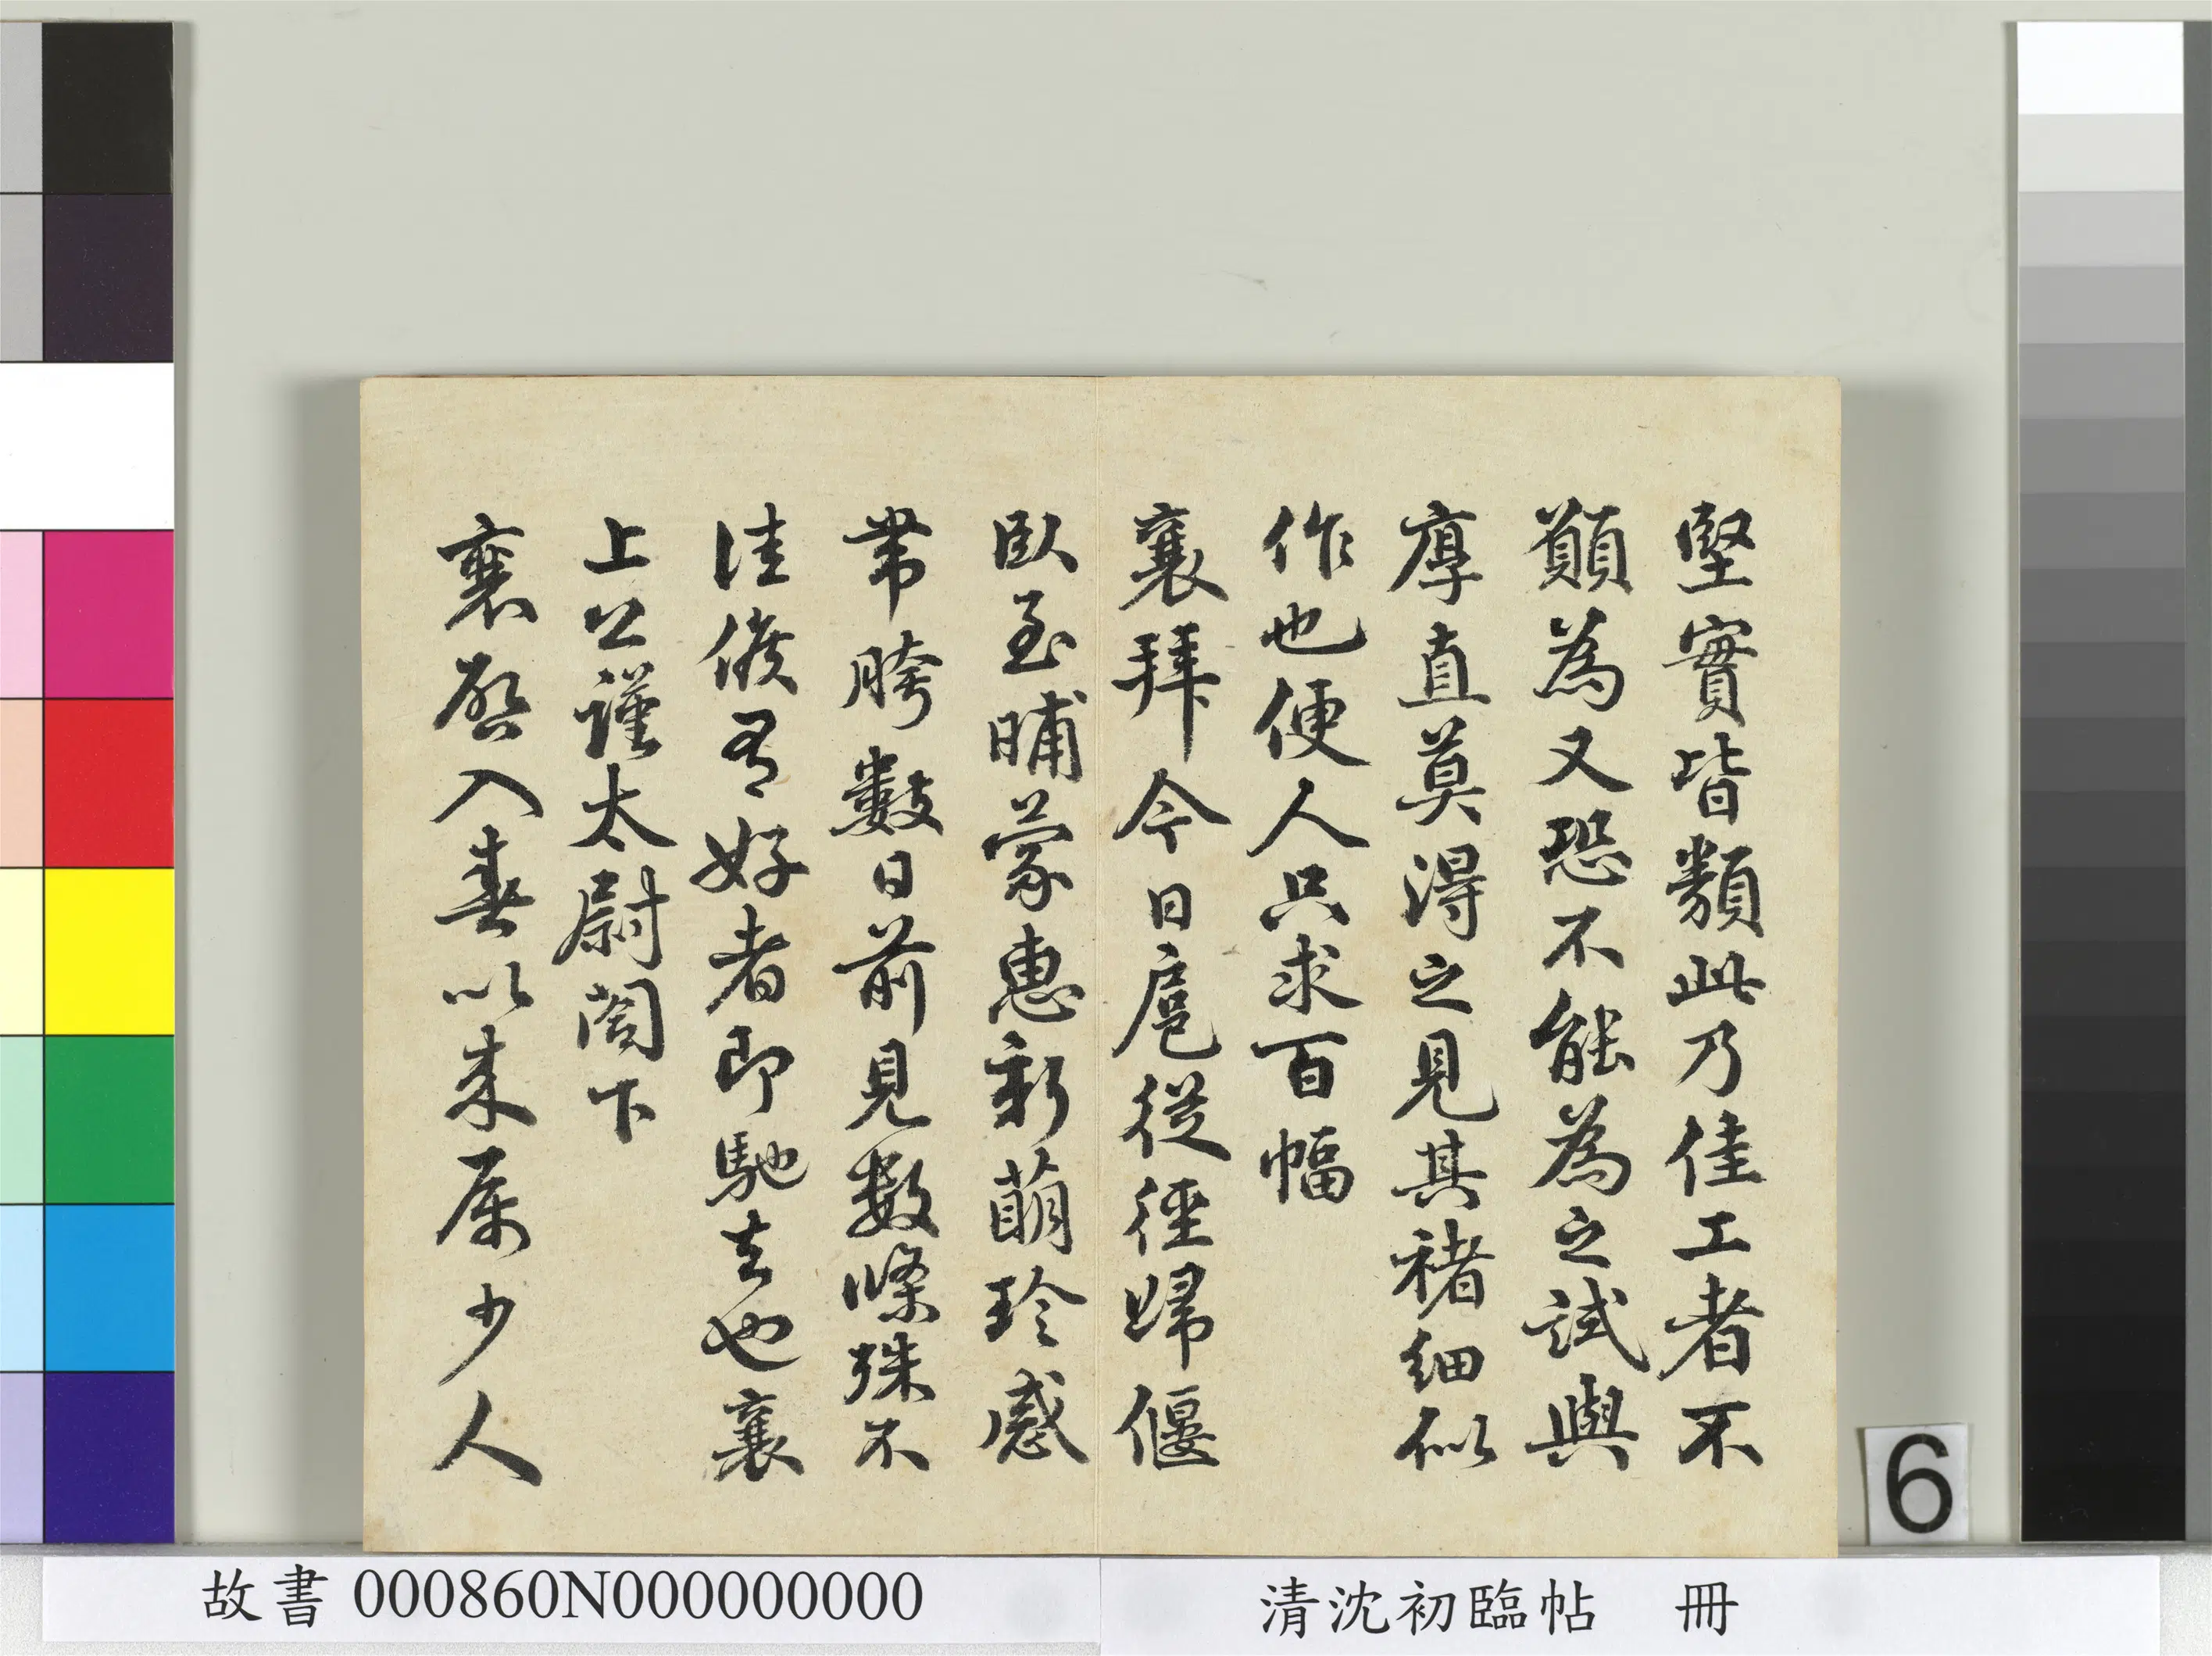 堅實皆類此乃佳工者不
願為又恐不能為之試與
厚直莫得之見其褚細似
作也便人只求百幅
襄拜今日扈從徑歸偃
臥至晡蒙惠新萌珍感
帶胯數日前見數條殊不
佳候有好者即馳去也襄
上公謹太尉閣下
襄啟入春以來屬少人
6
故書 000860N000000000
清沈初臨帖 冊